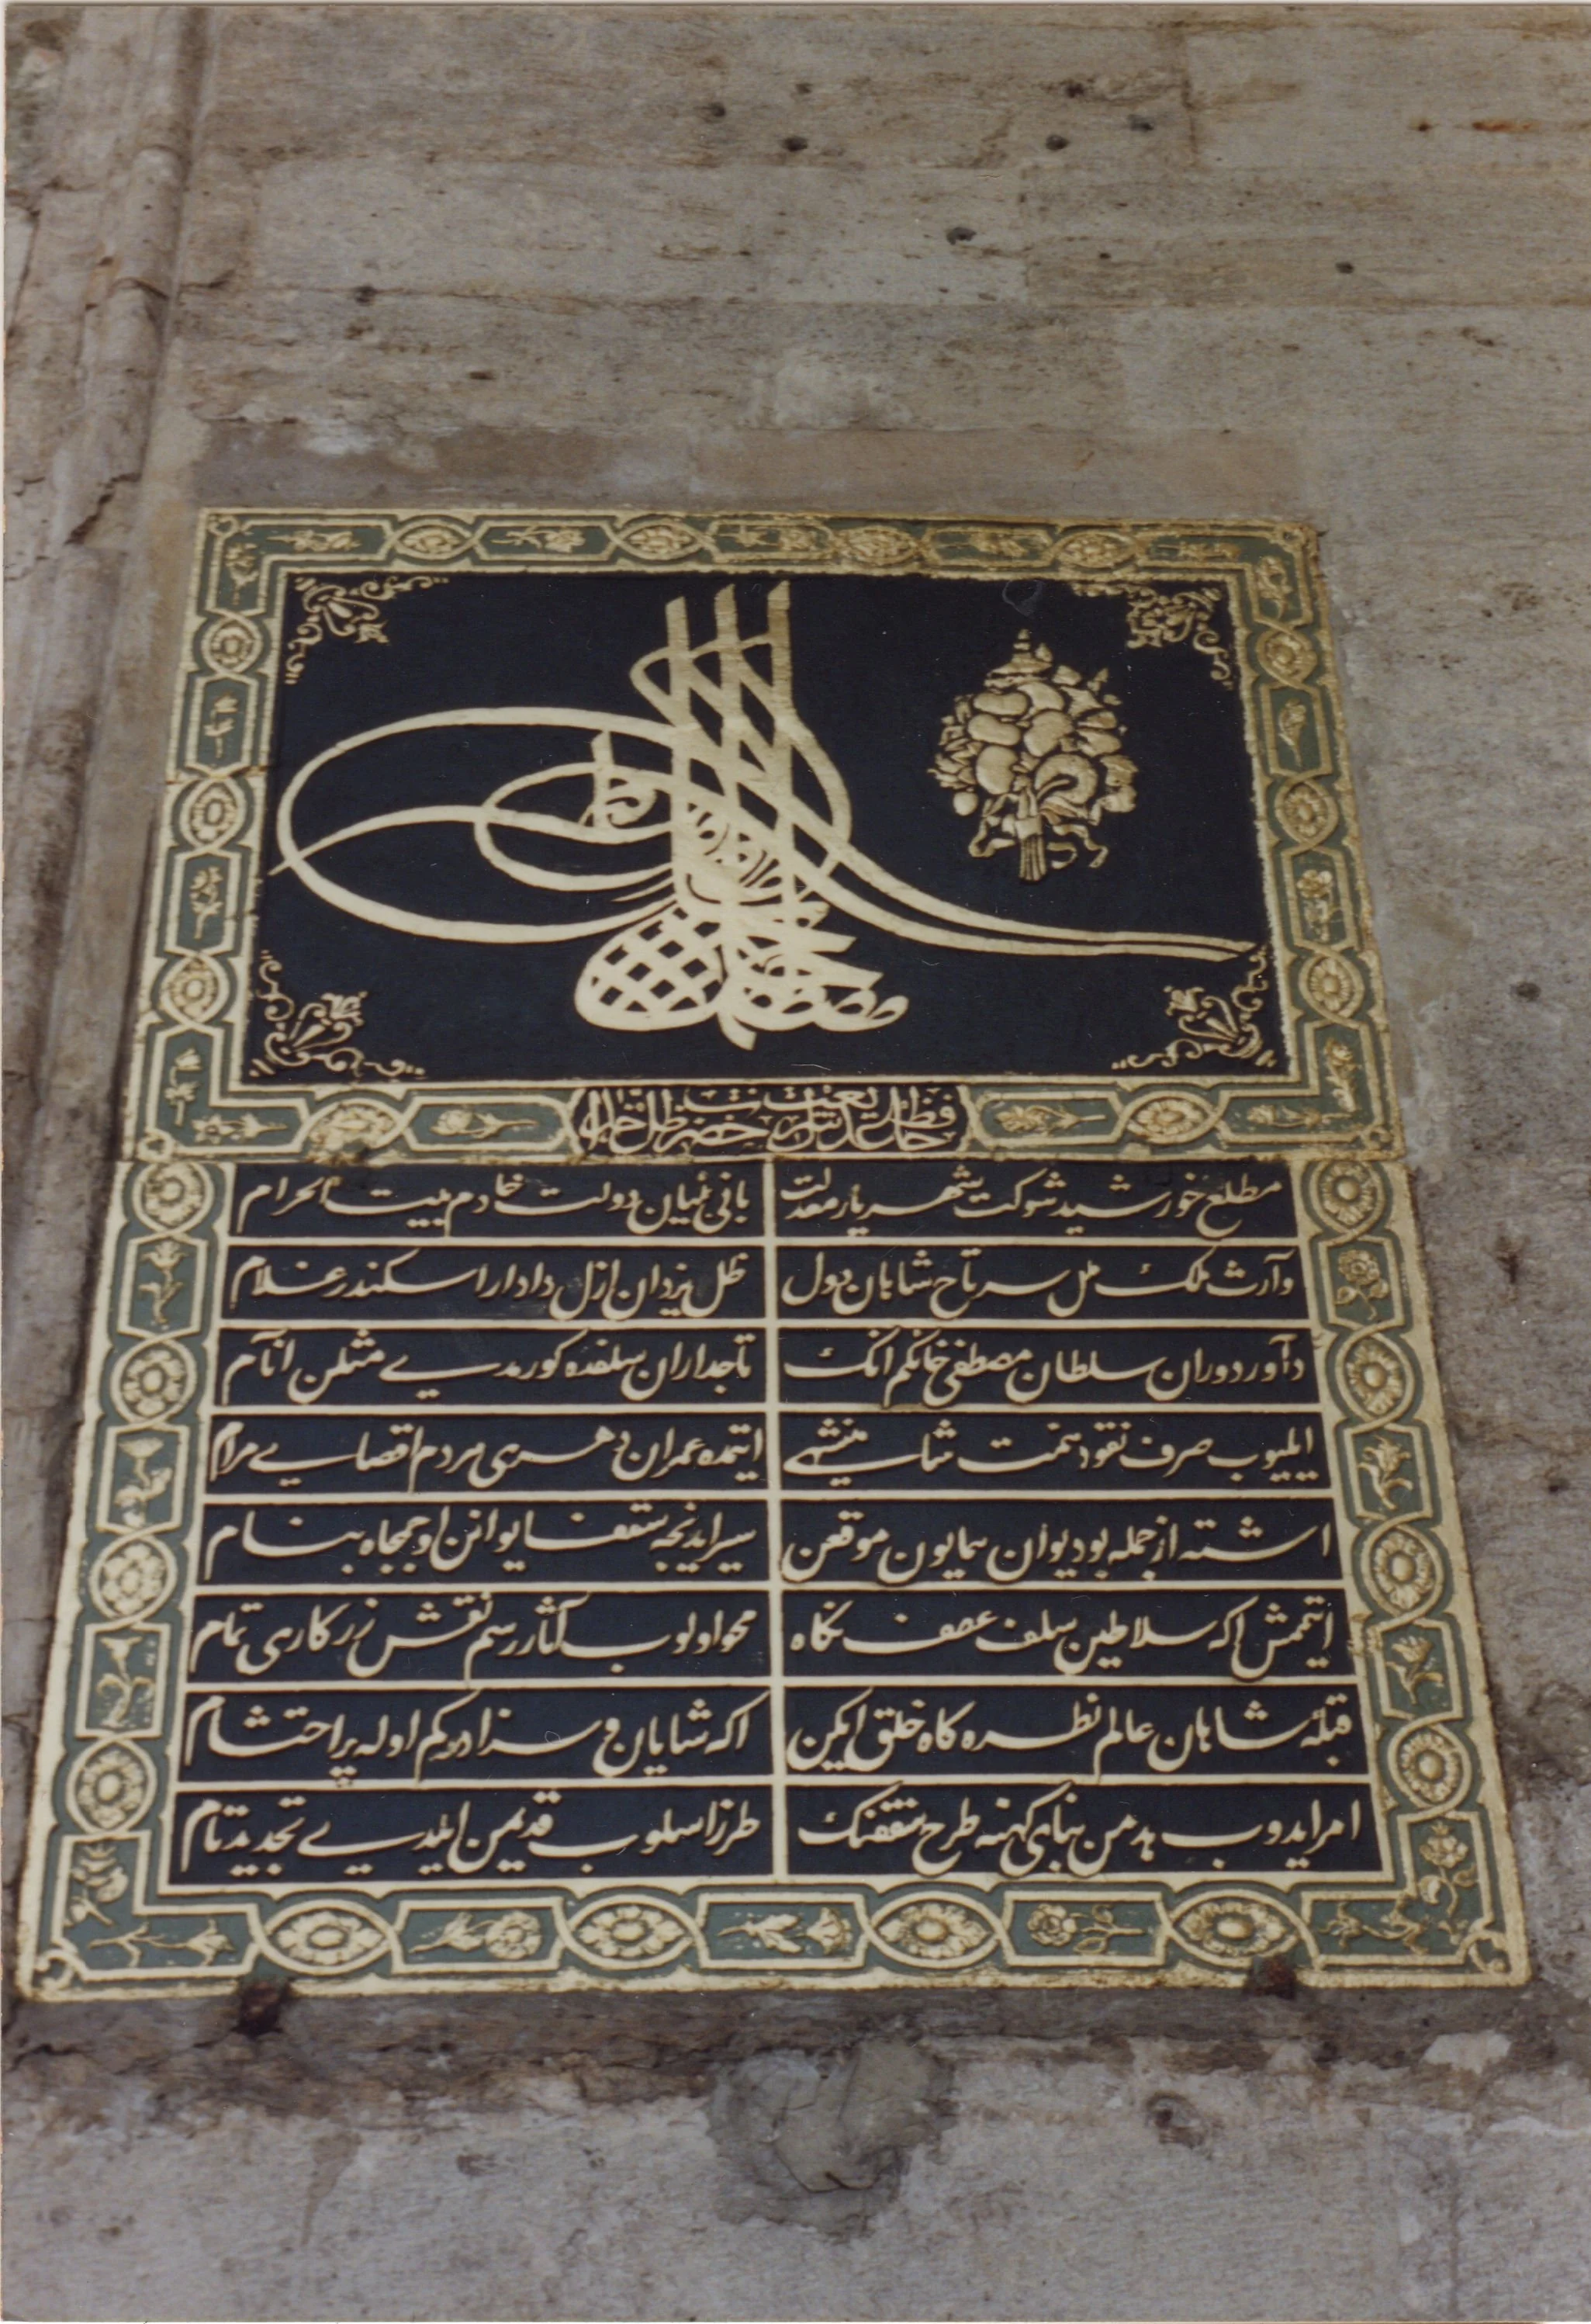 مطلع خورشید شوکت شهریار معدلت
بانی بنیان دولت خادم بیت الحرام
وارث ملک ملل سرتاج شاهان دول
ظل یزدان ازل دادار اسکندر غلام
داور دوران سلطان مصطفی خانکم انک
تاجداران سلفده کورمدی مثلن انام
ایلیوب صرف نقود همت شاهنشهی
ایتمده عمران دهری مردم اقصای مرام
اشته از جمله بو دیوان همایون موقعن
سیر ایدنجه سقف ایوانن او جمجاه بنام
ایتممش اکه سلاطین سلف عطف نکاه
محو اولوب آثار رسم نقش زرکاری تمام
قبلهٔ شاهان عالم نظره کاه خلق ایکن
اکه شایان و سزادر کم اوله پر احتشام
امر ایدوب هدمن بنای کهنه طرح سقفنک
طرز اسلوب قدیمن ایلدی تجدید تام